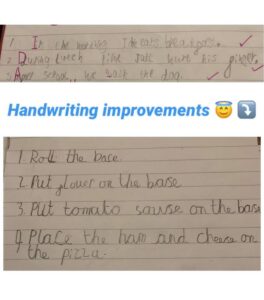 1. In the morning I he eats breakfast.
2. During lunch time Jack his
3. After school, we walk the dog.
Handwriting improvements 😇 ⤵️
1. Roll the bace
2. Put glouer on the base
3. Put tomato sause on the base
4. Place the ham and cheese on
the pizza.